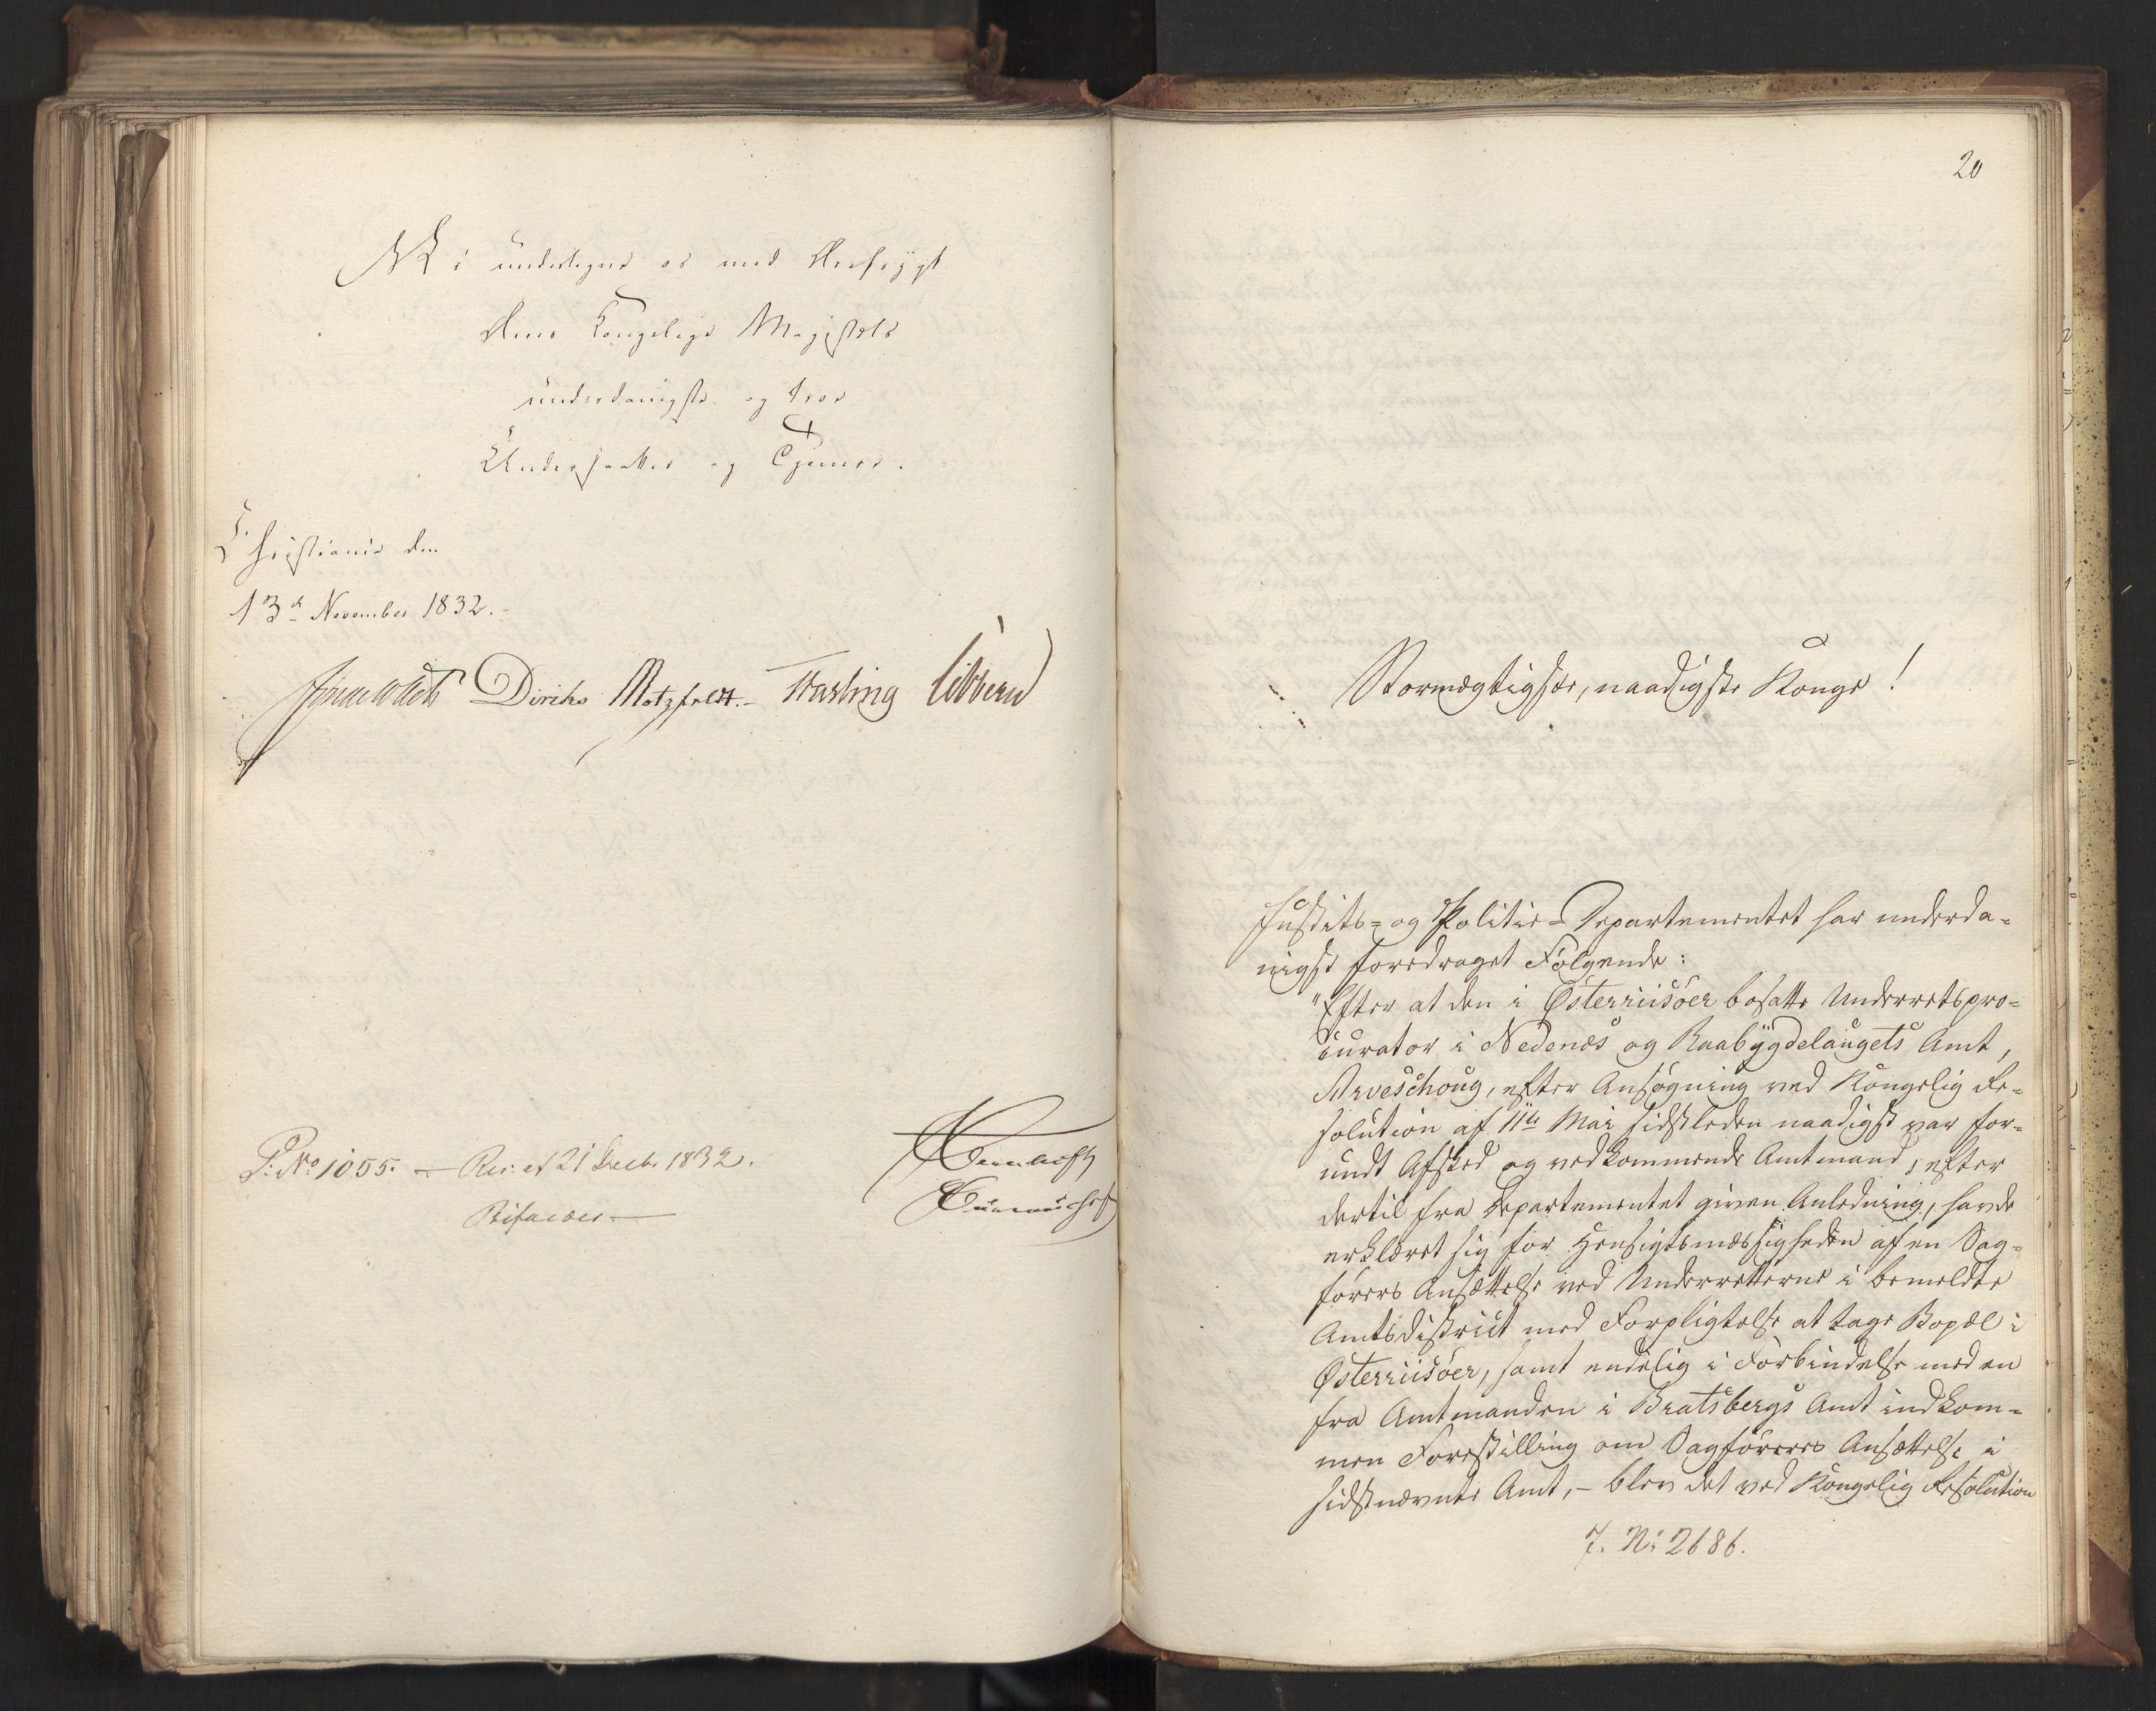 Vi undertegne os med Ærefrygt
Deres Kongelige Majestæts
underdanigste og troe
Undersaatter og Tjenere.
Christiania den
13de November 1832.
Diriks Motzfeldt. Fasting Vibbern
P: No 1055. — Res: af 21 Decbr 1832.
Bifaldes.—
20
Stormægtigste, naadigste Konge!
Justits- og Politie-Departementet har underda-
nigst foredraget Følgende:
"Efter at den i Østerriisöer bosatte Underretspro-
curator i Nedenæs og Raabÿgdelaugets Amt,
Arveschoug, efter Ansøgning ved Kongelig Re-
solution af 11te Mai sidstleden naadigst var for-
undt Afsked og vedkommende Amtmand, efter
dertil fra Departementet given Anledning, havde
erklæret sig for Hensigtsmæssigheden af en Sag-
førers Ansættelse ved Underretterne i bemeldte
Amtsdistrict med Forpligtelse at tage Bopæl i
Østerriisöer, samt endelig i Forbindelse med en
fra Amtmanden i Bratsbergs Amt indkom-
men Forestilling om Sagføreres Ansættelse i
sidstnævnte Amt, – blev det ved Kongelig Resolution
7. No 2686.